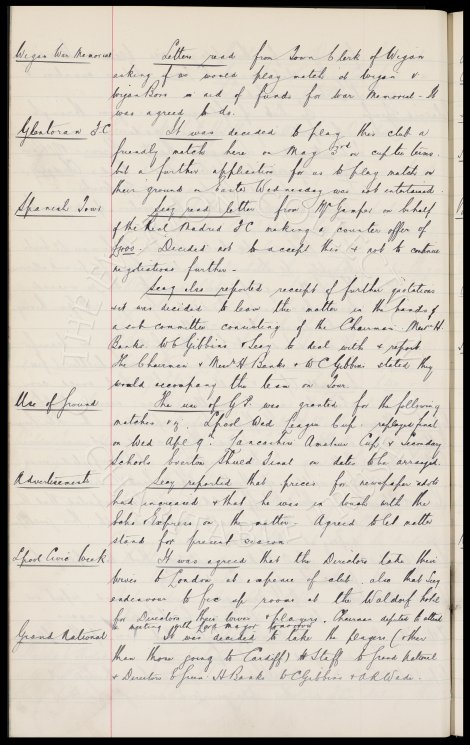 Wigan War Memorial Letters read from Town Clerk of Wigan
asking if we would play match at Wigan &
Wigan Boro in aid of funds for War Memorial - It
was agreed to do.
Glentoran F.C It was decided to play this club a
friendly match here on May 3rd on cup tie terms.
but a further application for us to play match on
their ground on Easter Wednesday was not entertained.
Spanish Tour Secy read letter from Mr Gamper on behalf
of the Real Madrid F C making a counter offer of
Decided not to accept this & not to continue
negotiations further -
Secy also reported receipt of further quotations
& it was decided to leave the matter in the hands of
a sub committee consisting of the Chairman Messrs H.
Banks W C Gibbins & Secy to deal with & report
The Chairman & Messrs H Banks & W C Gibbins stated they
would accompany the team on tour.
Use of Ground The use of G.P. was granted for the following
matches
on Wed Apl 9th. Lancashire Amateur Cup & Secondary
Schools Everton Shield Final on dates to be arranged.
Advertisements Secy reported that prices for newspaper advts
had increased & that he was in touch with the
Echo & Express on the matter - Agreed to let matter
stand for present season
Lpool Civic Week It was agreed that the Directors take their
wives to London at expense of club. also that Secy
endeavour to fix up rooms at the Waldorf hotel
for Directors their wives & players. Chairman deputed to attend
to meeting with Lord Mayor tomorrow
Grand National It was decided to take the players (other
than those going to Cardiff) & Staff to Grand National
& Directors H Banks W C Gibbins & A R Wade.